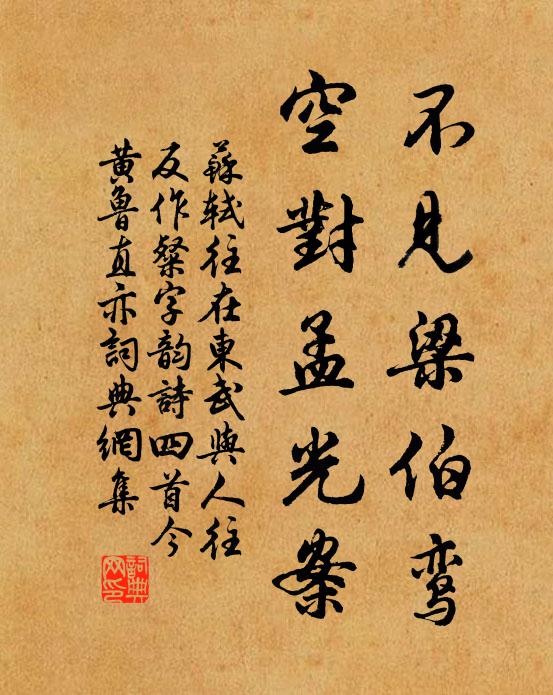 不見梁伯鸾
空對孟光案
蘇軾往在東武與人往
反作粲字韵詩四首今
黃魯直亦詞典網集
詞典
网印